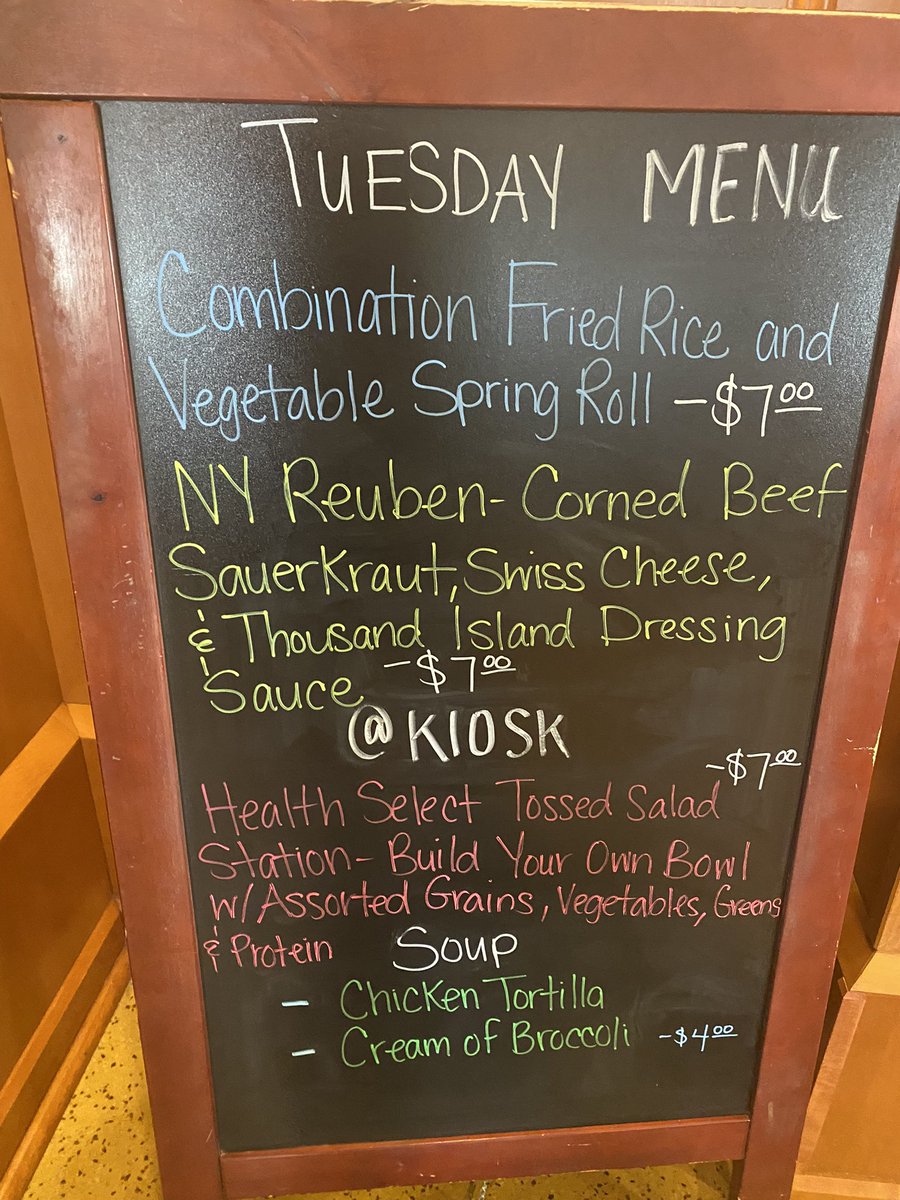 TUESDAY MENU
Combination Fried Rice and
Vegetable Spring Roll -$7.00
NY Reuben- Corned Beef
Sauerkraut, Swiss Cheese,
& Thousand Island Dressing
Sauce -$7.00
@ KIOSK
-$7.00
Health Select Tossed Salad
Station- Build Your Own Bowl
w/Assorted Grains, Vegetables, Greens
& Protein Soup
- Chicken Tortilla
- Cream of Broccoli -$4.00